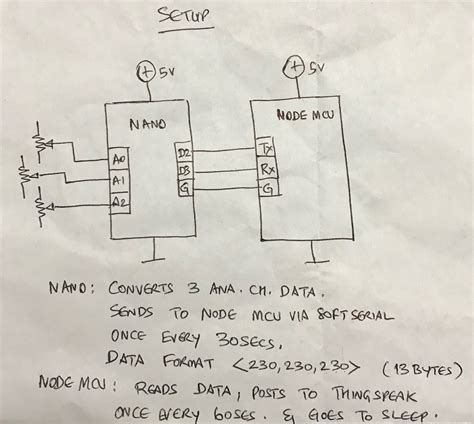 SETUP
5V
5V
NANO
NODE MCU
A0
A1
A2
D2
D3
G
Tx
Rx
G
NANO: CONVERTS 3 ANA. CH. DATA.
SENDS TO NODE MCU VIA SOFTSERIAL
ONCE EVERY 30SECS.
DATA FORMAT <230,230,230> (13 BYTES)
NODE MCU: READS DATA, POSTS TO THINGSPEAK
ONCE EVERY 60SES. & GOES TO SLEEP.